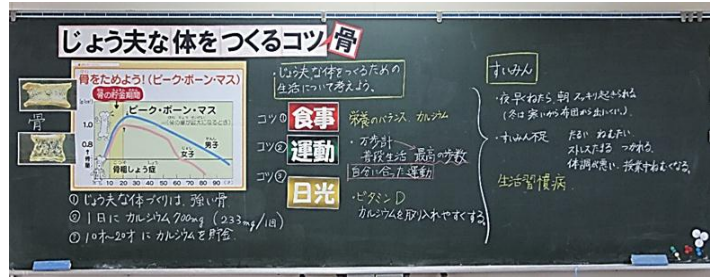 じょう夫な体をつくるコツ 骨
骨をためよう!(ピーク・ボーン・マス)
骨の貯金期間
ピーク・ボーン・マス
1.0
0.8
骨量
男子
女子
骨粗しょう症
10 20 30 40 50 60 70 80 90
骨
① じょう夫な体づくりは、強い骨
② 1日にカルシウム700mg (233mg/1回)
③ 10才~20才にカルシウムを貯金
・じょう夫な体をつくるための
生活について考えよう。
コツ① 食事 栄養のバランス、カルシウム
コツ② 運動 ・万歩計
普段生活 最高の歩数
自分に合った運動
コツ③ 日光 ・ビタミンD
カルシウムを取り入れやすくする。
すいみん
・夜早ねたら、朝スッキリ起きられる
(冬は寒いから布団から出にくい。)
・すいみん不足 だるい ねむたい
ストレスたまる つかれる
体調が悪い、授業中ねむくなる。
生活習慣病